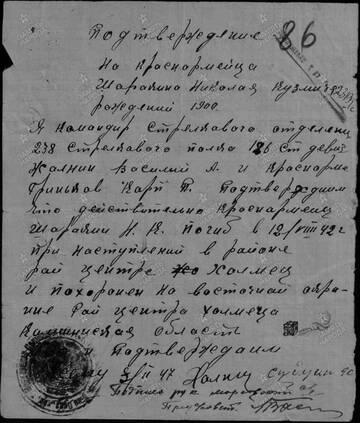 86
Подтверждение
на красноармейца
Шаракина Николая Кузмича
рождений 1900.
Я командир стрелкового отделения
238 стрелкового полка 186 ст дивиз
Жалнин Василий А. и красноарме
Гриньков Карп Т. Подтверждаим
что действительно красноармеец
Шаракин Н. К. погиб в 12/VIII 42 г
при наступлений в районе
рай центре Холмец
и похоронен на восточной окра-
ине рай центра Холмеца
Калининская область
и Подтверждаим
3/II 47